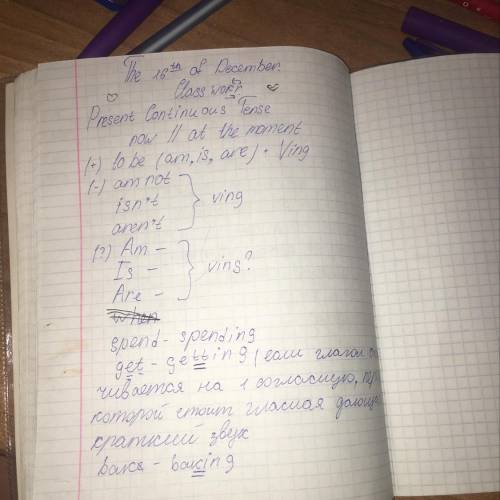 The 16th of December.
Class work.
Present Continuous Tense
now // at the moment
(+) to be (am, is, are) + Ving
(-) am not
isn't
aren't
ving
(?) Am -
Is -
Are -
ving?
when
spend - spending
get - getting (если глагол
чивается на 1 согласную,
которой стоит гласная дающая
краткий звук
bake - baking